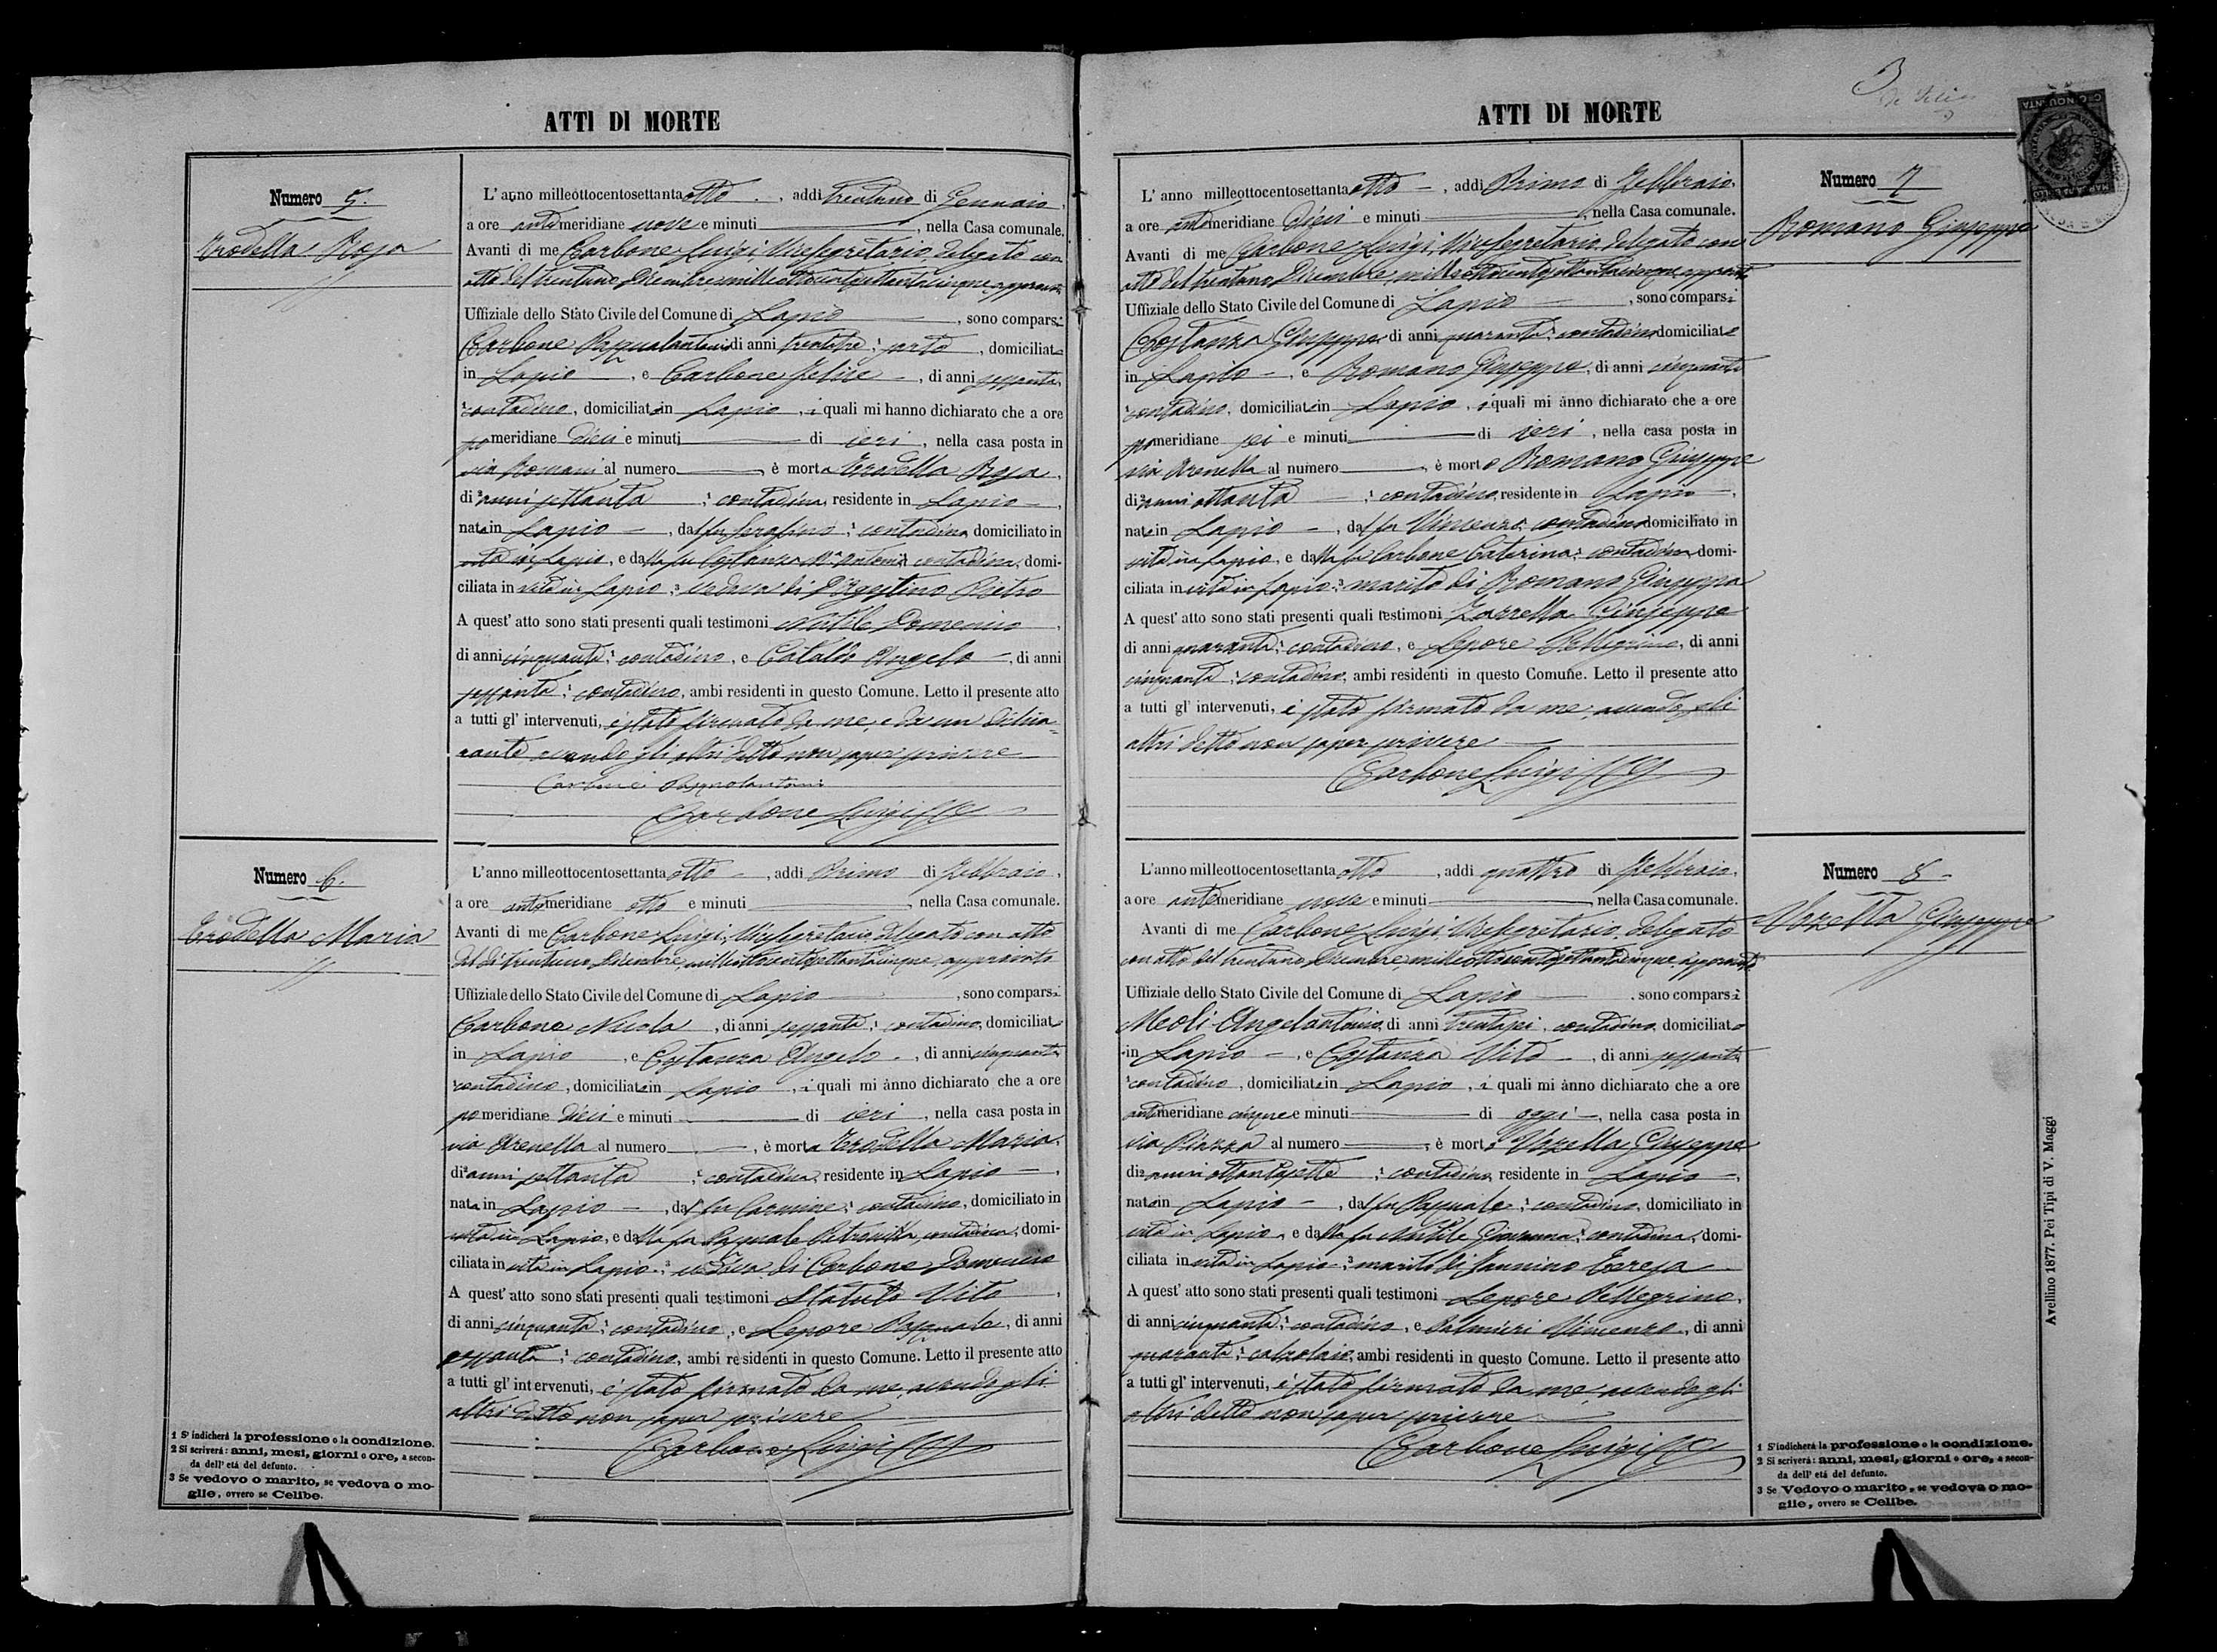 ATTI DI MORTE
Numero 5.
Trodella Rosa
L'anno milleottocentosettantaotto, addi trentuno di Gennaio,
a ore antimeridiane nove e minuti, nella Casa comunale.
Avanti di me Carbone Luigi, Vicesegretario, delegato con
atto del trentuno Dicembre milleottocentosettantacinque, approvato
Uffiziale dello Stato Civile del Comune di Lapio, sono comparsi
Carbone Pasqualantonio di anni trentatre, sarto, domiciliato
in Lapio, e Carbone Felice, di anni sessanta,
contadino, domiciliato in Lapio, i quali mi hanno dichiarato che a ore
pomeridiane dieci e minuti di ieri, nella casa posta in
via Romani al numero, è morta Trodella Rosa
di anni settanta, contadina, residente in Lapio,
nata in Lapio, dal fu Serafino, contadino, domiciliato in
vita in Lapio, e dalla fu Costanza Mª Antonia contadina, domi-
ciliata in vita in Lapio, vedova di D'Agostino Pietro
A quest'atto sono stati presenti quali testimoni Nutile Domenico,
di anni cinquanta, contadino, e Cataldo Angelo, di anni
sessanta, contadino, ambi residenti in questo Comune. Letto il presente atto
a tutti gl'intervenuti, è stato firmato da me, e da un dichia-
rante, avendo gli altri detto non saper scrivere
Carbone Pasqualantonio
Carbone Luigi
Numero 6.
Trodella Maria
L'anno milleottocentosettantaotto, addi Primo di Febbraio,
a ore antimeridiane otto e minuti, nella Casa comunale.
Avanti di me Carbone Luigi, Vicesegretario delegato con atto
del di trentuno Dicembre, milleottocentosettantacinque, approvato
Uffiziale dello Stato Civile del Comune di Lapio, sono comparsi
Carbone Nicola, di anni sessanta, contadino, domiciliato
in Lapio, e Costanza Angelo, di anni cinquanta
contadino, domiciliato in Lapio, i quali mi ànno dichiarato che a ore
pomeridiane dieci e minuti di ieri, nella casa posta in
via Arenella al numero, è morta Trodella Maria,
di anni settanta, contadina, residente in Lapio,
nata in Lapio, dal fu Carmine, contadino, domiciliato in
vita in Lapio, e dalla fu Pasquale Petronilla, contadina, domi-
ciliata in vita in Lapio, vedova di Carbone Domenico
A quest'atto sono stati presenti quali testimoni Statuto Vito,
di anni cinquanta, contadino, e Lepore Pasquale, di anni
sessanta, contadino, ambi residenti in questo Comune. Letto il presente atto
a tutti gl'intervenuti, è stato firmato da me, avendo gli
altri detto non saper scrivere
Carbone Luigi
1 S'indicherà la professione o la condizione.
2 Si scriverà: anni, mesi, giorni o ore, a secon-
da dell'età del defunto.
3 Se vedovo o marito, se vedova o mo-
glie, ovvero se Celibe.
ATTI DI MORTE
Numero 7
Romano Giuseppe
L'anno milleottocentosettantaotto, addi Primo di Febbraio,
a ore antimeridiane dieci e minuti, nella Casa comunale.
Avanti di me Carbone Luigi, Vicesegretario, delegato con
atto del trentuno Dicembre, milleottocentosettantacinque, approvato
Uffiziale dello Stato Civile del Comune di Lapio, sono comparsi
Costanza Giuseppe di anni quaranta, contadino domiciliato
in Lapio, e Romano Giuseppe, di anni cinquanta
contadino, domiciliato in Lapio, i quali mi ànno dichiarato che a ore
pomeridiane sei e minuti di ieri, nella casa posta in
via Arenella al numero, è morto Romano Giuseppe
di anni ottanta, contadino, residente in Lapio,
nato in Lapio, dal fu Vincenzo, contadino domiciliato in
vita in Lapio, e dalla fu Carbone Caterina, contadina domi-
ciliata in vita in Lapio, marito di Romano Giuseppa
A quest'atto sono stati presenti quali testimoni Zarrella Giuseppe
di anni quaranta, contadino, e Lepore Pellegrino, di anni
cinquanta, contadino, ambi residenti in questo Comune. Letto il presente atto
a tutti gl'intervenuti, è stato firmato da me, avendo gli
altri detto non saper scrivere
Carbone Luigi
Numero 8
L'anno milleottocentosettantaotto, addi quattro di Febbraio,
a ore antimeridiane nove e minuti, nella Casa comunale.
Avanti di me Carbone Luigi, Vicesegretario, delegato
con atto del trentuno Dicembre, milleottocentosettantacinque, approvato
Uffiziale dello Stato Civile del Comune di Lapio, sono comparsi
Meoli Angelantonio, di anni trentasei, contadino, domiciliato
in Lapio, e Costanza Vito, di anni sessanta
contadino, domiciliato in Lapio, i quali mi ànno dichiarato che a ore
antimeridiane cinque e minuti di oggi, nella casa posta in
via Piazza al numero, è morto Giuseppe
di anni ottantasette, contadino, residente in Lapio,
nato in Lapio, dal fu Pasquale, contadino, domiciliato in
vita in Lapio, e dalla fu Nutile Giovanna, contadina, domi-
ciliata in vita in Lapio, marito di Iannino Teresa
A quest'atto sono stati presenti quali testimoni Lepore Pellegrino,
di anni cinquanta, contadino, e Palmieri Vincenzo, di anni
quaranta, calzolaio, ambi residenti in questo Comune. Letto il presente atto
a tutti gl'intervenuti, è stato firmato da me, avendo gli
altri detto non saper scrivere
Carbone Luigi
1 S'indicherà la professione o la condizione.
2 Si scriverà: anni, mesi, giorni o ore, a secon-
da dell'età del defunto.
3 Se Vedovo o marito, se vedova o mo-
glie, ovvero se Celibe.
Avellino 1877. Pei Tipi di V. Maggi